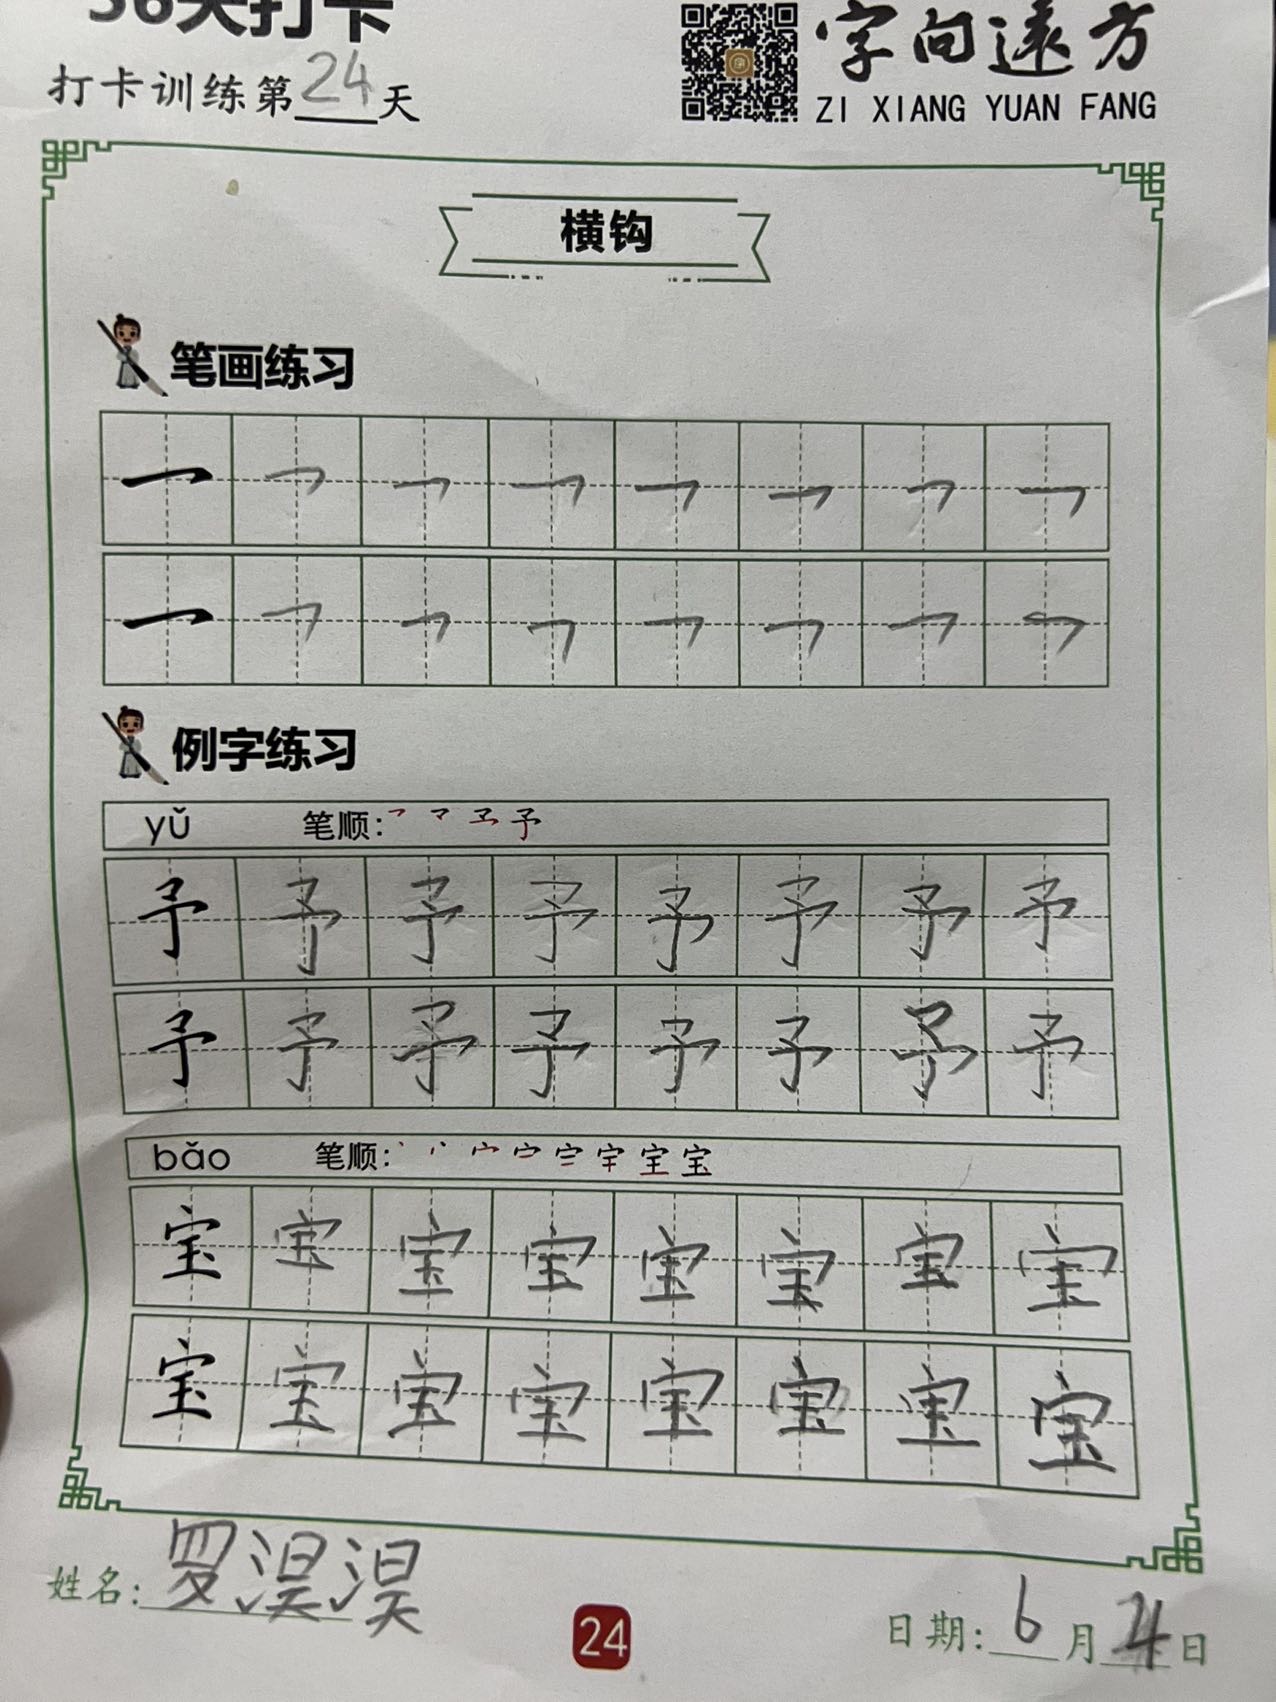 56天打卡
字向远方
打卡训练第24天
ZI XIANG YUAN FANG
横钩
笔画练习
例字练习
yǔ 笔顺:
予 予 予 予 予 予 予 予
予 予 予 予 予 予 予 予
bǎo 笔顺:
宝 宝 宝 宝 宝 宝 宝 宝
宝 宝 宝 宝 宝 宝 宝 宝
姓名:罗淏淏
24
日期:6月24日